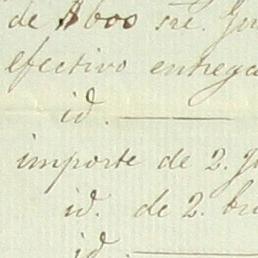 de $600
efectivo entrega
id. ———
importe de 2.
id. de 2.
id. ———